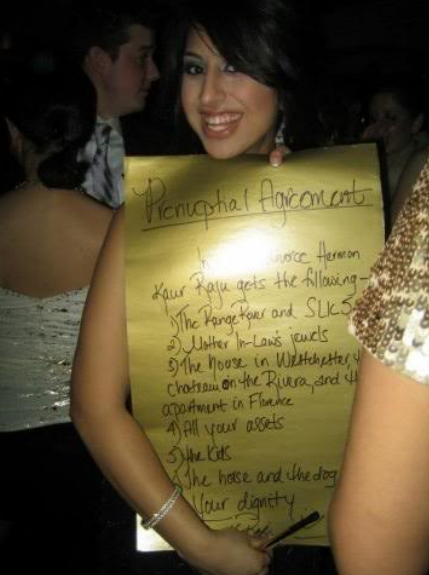 Prenuptial Agreement
divorce Herman
Kaur Raju gets the following -
1) The Range Rover and SLK 5
2) Mother In-Law's jewels
3) The house in Westchester,
chateau on the Riviera, and th
apartment in Florence
4) All your assets
5) the Kids
The horse and the dog
Your dignity